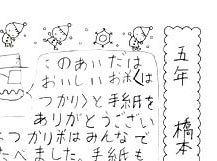 五年 橋本
このあいだは
おいしいおボくは
つかりンと手紙を
ありがとうござい
つかりボはみんなで
べました。手紙も